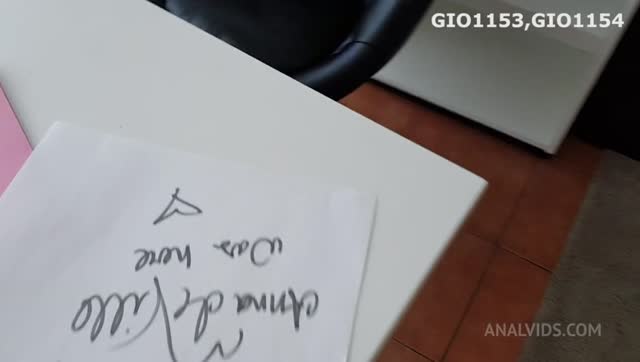 GIO1153,GIO1154
Anna de Ville
Was here
ANALVIDS.COM